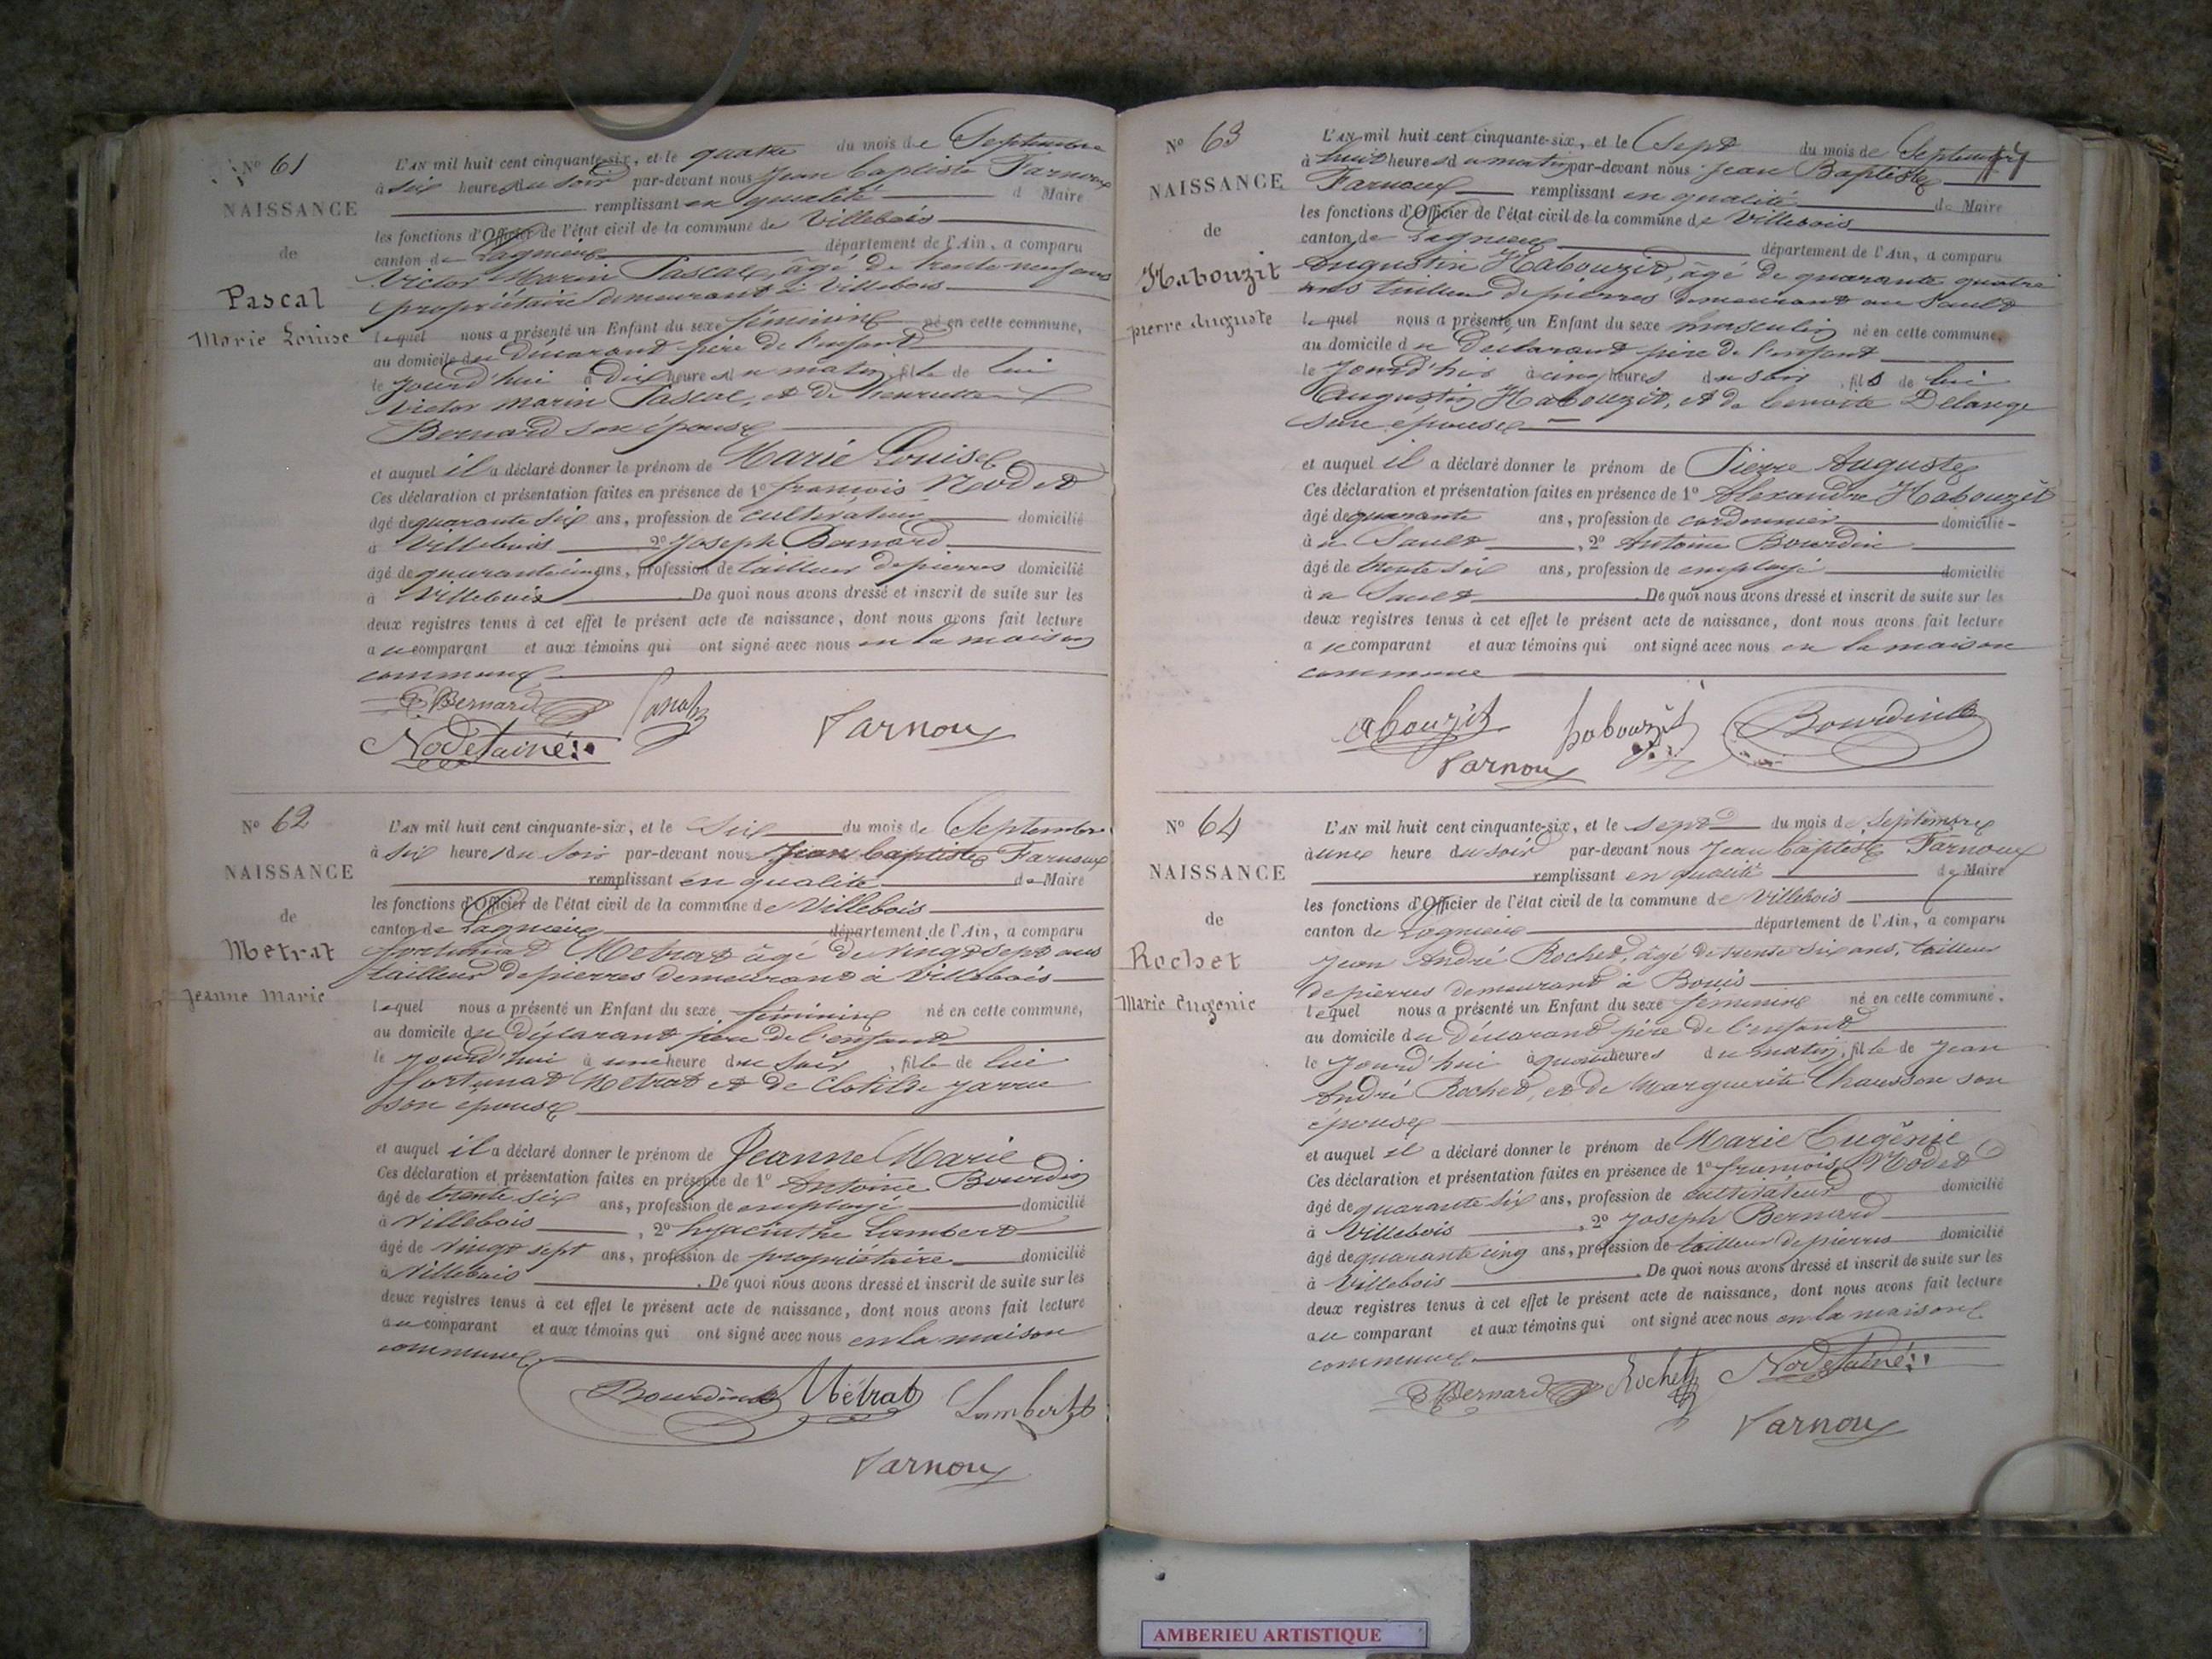 N° 61
NAISSANCE
de
Pascal
Marie Louise
L'AN mil huit cent cinquante-six, et le quatre du mois de Septembre
à six heures du soir par-devant nous Jean Baptiste Farnoux
remplissant en qualité de Maire
les fonctions d'Officier de l'état civil de la commune de Villebois
canton de Lagnieux département de l'Ain, a comparu
Victor Marin Pascal, âgé de trente neuf ans
propriétaire demeurant à Villebois
lequel nous a présenté un Enfant du sexe féminin né en cette commune,
au domicile du déclarant père de l'enfant
le jourd'hui à dix heures du matin, fille de lui
Victor Marin Pascal, et de henriette
Bernard son épouse
et auquel il a déclaré donner le prénom de Marie Louise
Ces déclaration et présentation faites en présence de 1° françois Nodet
âgé de quarante six ans, profession de cultivateur domicilié
à Villebois 2° Joseph Bernard
âgé de quarante cinq ans, profession de tailleur de pierres domicilié
à Villebois De quoi nous avons dressé et inscrit de suite sur les
deux registres tenus à cet effet le présent acte de naissance, dont nous avons fait lecture
au comparant et aux témoins qui ont signé avec nous en la maison
commune
Bernard
Nodet ainé Farnoux
N° 62
NAISSANCE
de
Metrat
Jeanne Marie
L'AN mil huit cent cinquante-six, et le Six du mois de Septembre
à six heures du soir par-devant nous Jean baptiste Farnoux
remplissant en qualité de Maire
les fonctions d'Officier de l'état civil de la commune de Villebois
canton de Lagnieux département de l'Ain, a comparu
fortunat Metrat âgé de vingt sept ans
tailleur de pierres demeurant à Villebois
lequel nous a présenté un Enfant du sexe féminin né en cette commune,
au domicile du déclarant père de l'enfant
le jourd'hui à une heure du soir, fille de lui
fortunat Metrat et de Clotilde Jarrin
son épouse
et auquel il a déclaré donner le prénom de Jeanne Marie
Ces déclaration et présentation faites en présence de 1° Antoine Bourdin
âgé de trente six ans, profession de employé domicilié
à Villebois, 2° hyacinthe Lambert
âgé de vingt sept ans, profession de propriétaire domicilié
à Villebois. De quoi nous avons dressé et inscrit de suite sur les
deux registres tenus à cet effet le présent acte de naissance, dont nous avons fait lecture
au comparant et aux témoins qui ont signé avec nous en la maison
commune
Bourdin Métrat Lambert
Farnoux
N° 63
NAISSANCE
de
Habouzit
pierre Auguste
L'AN mil huit cent cinquante-six, et le Sept du mois de Septembre
à huit heures du matin par-devant nous Jean Baptiste
Farnoux remplissant en qualité de Maire
les fonctions d'Officier de l'état civil de la commune de Villebois
canton de Lagnieux département de l'Ain, a comparu
Augustin Habouzit, âgé de quarante quatre
ans tailleur de pierres demeurant au Sault
lequel nous a présenté un Enfant du sexe masculin né en cette commune,
au domicile du déclarant père de l'enfant
le jourd'hui à cinq heures du soir, fils de lui
Augustin Habouzit, et de benoite Delange
son épouse
et auquel il a déclaré donner le prénom de Pierre Auguste
Ces déclaration et présentation faites en présence de 1° Alexandre Habouzit
âgé de quarante ans, profession de cordonnier domicilié
à u Sault, 2° Antoine Bourdin
âgé de trente six ans, profession de employé domicilié
à u Sault De quoi nous avons dressé et inscrit de suite sur les
deux registres tenus à cet effet le présent acte de naissance, dont nous avons fait lecture
au comparant et aux témoins qui ont signé avec nous en la maison
commune
abouzit habouzit Bourdin
Farnoux
N° 64
NAISSANCE
de
Rochet
Marie Eugenie
L'AN mil huit cent cinquante-six, et le sept du mois de Septembre
à une heure du soir par-devant nous Jean baptiste Farnoux
remplissant en qualité de Maire
les fonctions d'Officier de l'état civil de la commune de Villebois
canton de Lagnieux département de l'Ain, a comparu
Jean André Rochet, âgé de trente six ans, tailleur
de pierres demeurant à Bouis
lequel nous a présenté un Enfant du sexe féminin né en cette commune,
au domicile du déclarant père de l'enfant
le jourd'hui à quatre heures du matin, fille de Jean
André Rochet, et de Marguerite Chausson son
épouse
et auquel il a déclaré donner le prénom de Marie Eugénie
Ces déclaration et présentation faites en présence de 1° françois Nodet
âgé de quarante six ans, profession de cultivateur domicilié
à Villebois, 2° Joseph Bernard
âgé de quarante cinq ans, profession de tailleur de pierres domicilié
à Villebois. De quoi nous avons dressé et inscrit de suite sur les
deux registres tenus à cet effet le présent acte de naissance, dont nous avons fait lecture
au comparant et aux témoins qui ont signé avec nous en la maison
commune
Bernard Rochet Nodet ainé
Farnoux
AMBERIEU ARTISTIQUE